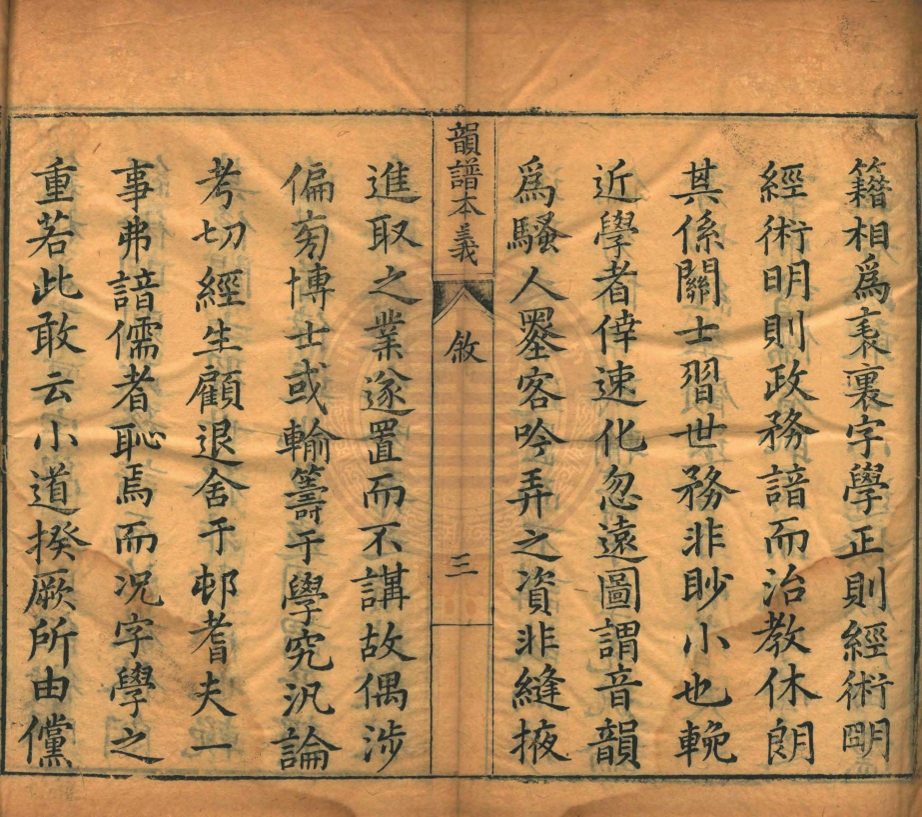 籍相爲表裏字學正則經術明
經術明則政務諳而治教休朗
其係關士習世務非眇小也輓
近學者倖速化忽遠圖謂音韻
爲騷人墨客吟弄之資非縫掖
韻譜本義
敘
三
進取之業遂置而不講故偶涉
偏旁博士或輸籌于學究汎論
考切經生顧退舍于邨耆夫一
事弗諳儒者恥焉而况字學之
重若此敢云小道揆厥所由儻